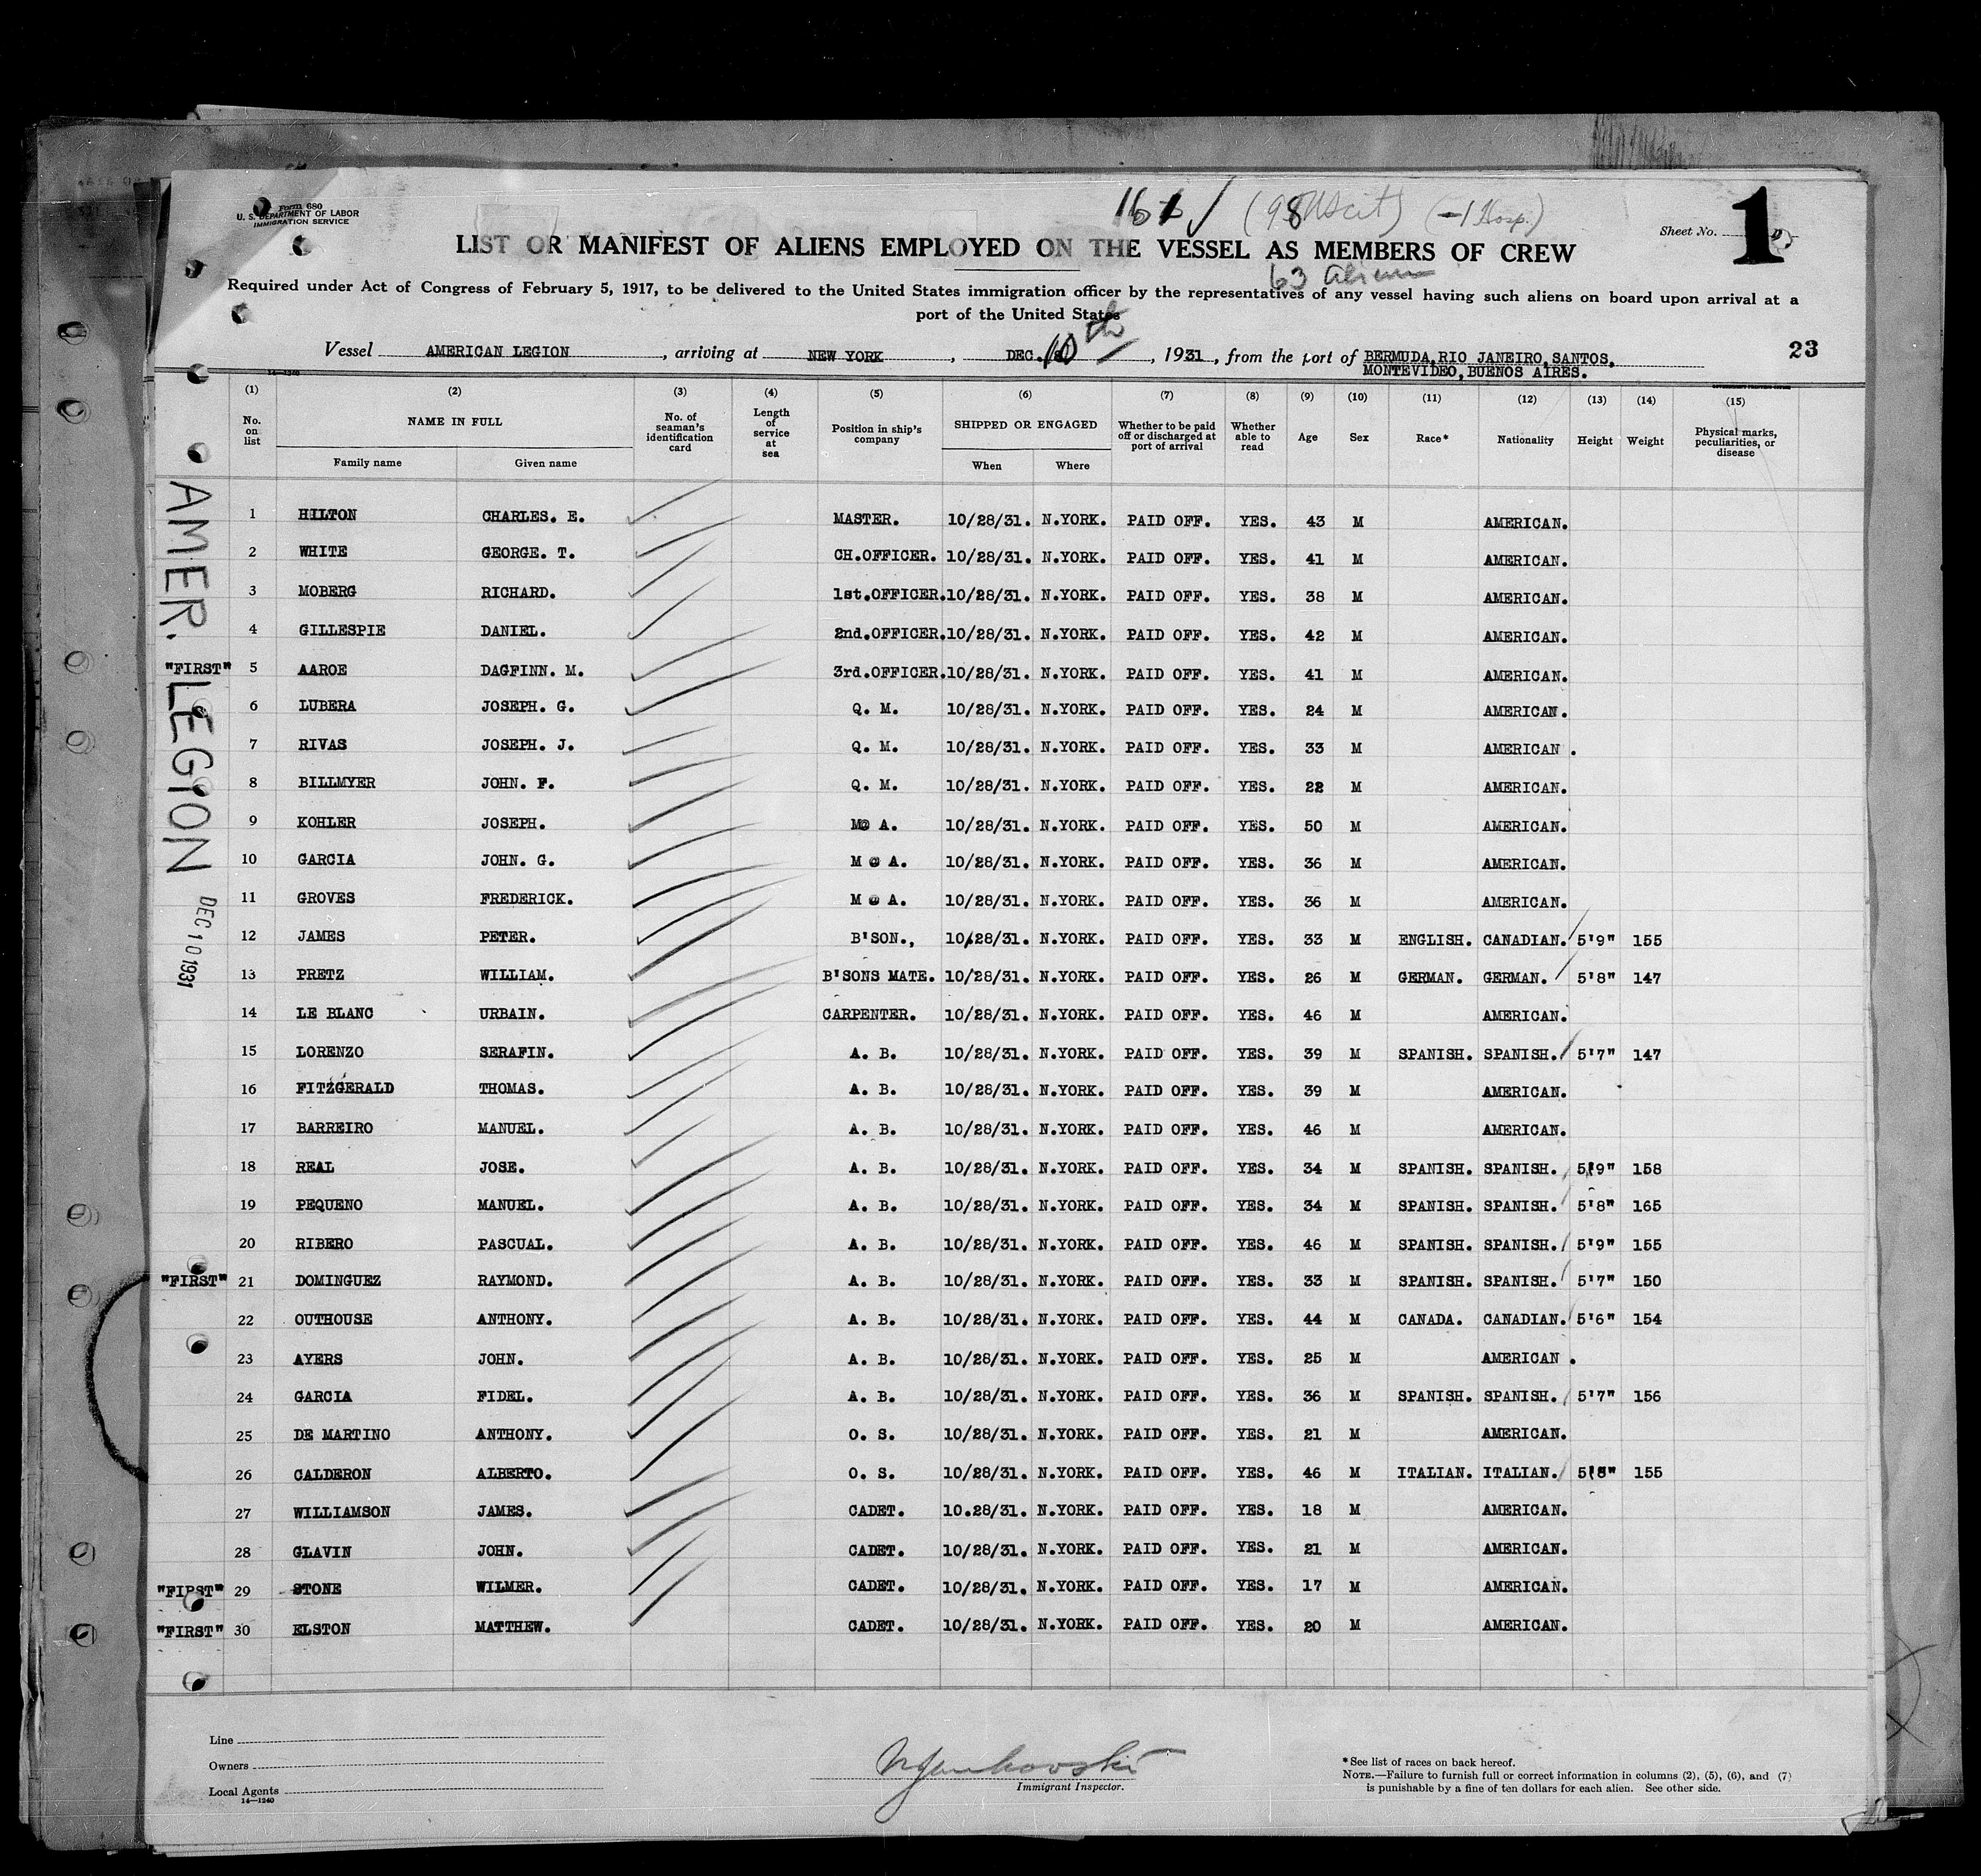 Form 680
U. S. DEPARTMENT OF LABOR
IMMIGRATION SERVICE
161 √ (98 US cit) (-1 Hosp.)
Sheet No. 1
LIST OR MANIFEST OF ALIENS EMPLOYED ON THE VESSEL AS MEMBERS OF CREW
63 Aliens
Required under Act of Congress of February 5, 1917, to be delivered to the United States immigration officer by the representatives of any vessel having such aliens on board upon arrival at a
port of the United States
Vessel AMERICAN LEGION, arriving at NEW YORK, DEC. 10th, 1931, from the port of BERMUDA, RIO JANEIRO, SANTOS,
MONTEVIDEO, BUENOS AIRES.
23
14-1240
(1) (2) (3) (4) (5) (6) (7) (8) (9) (10) (11) (12) (13) (14) (15)
No. on list NAME IN FULL Family name Given name No. of seaman's identification card Length of service at sea Position in ship's company SHIPPED OR ENGAGED When Where Whether to be paid off or discharged at port of arrival Whether able to read Age Sex Race* Nationality Height Weight Physical marks, peculiarities, or disease
AMER. LEGION
DEC 10 1931
1 HILTON CHARLES. E. MASTER. 10/28/31. N.YORK. PAID OFF. YES. 43 M AMERICAN.
2 WHITE GEORGE. T. CH.OFFICER. 10/28/31. N.YORK. PAID OFF. YES. 41 M AMERICAN.
3 MOBERG RICHARD. 1st.OFFICER. 10/28/31. N.YORK. PAID OFF. YES. 38 M AMERICAN.
4 GILLESPIE DANIEL. 2nd.OFFICER. 10/28/31. N.YORK. PAID OFF. YES. 42 M AMERICAN.
"FIRST" 5 AAROE DAGFINN. M. 3rd.OFFICER. 10/28/31. N.YORK. PAID OFF. YES. 41 M AMERICAN.
6 LUBERA JOSEPH. G. Q. M. 10/28/31. N.YORK. PAID OFF. YES. 24 M AMERICAN.
7 RIVAS JOSEPH. J. Q. M. 10/28/31. N.YORK. PAID OFF. YES. 33 M AMERICAN .
8 BILLMYER JOHN. F. Q. M. 10/28/31. N.YORK. PAID OFF. YES. 22 M AMERICAN.
9 KOHLER JOSEPH. M@ A. 10/28/31. N.YORK. PAID OFF. YES. 50 M AMERICAN.
10 GARCIA JOHN. G. M @ A. 10/28/31. N.YORK. PAID OFF. YES. 36 M AMERICAN.
11 GROVES FREDERICK. M @ A. 10/28/31. N.YORK. PAID OFF. YES. 36 M AMERICAN.
12 JAMES PETER. B'SON., 10/28/31. N.YORK. PAID OFF. YES. 33 M ENGLISH. CANADIAN. 5'9" 155
13 PRETZ WILLIAM. B'SONS MATE. 10/28/31. N.YORK. PAID OFF. YES. 26 M GERMAN. GERMAN. 5'8" 147
14 LE BLANC URBAIN. CARPENTER. 10/28/31. N.YORK. PAID OFF. YES. 46 M AMERICAN.
15 LORENZO SERAFIN. A. B. 10/28/31. N.YORK. PAID OFF. YES. 39 M SPANISH. SPANISH. 5'7" 147
16 FITZGERALD THOMAS. A. B. 10/28/31. N.YORK. PAID OFF. YES. 39 M AMERICAN.
17 BARREIRO MANUEL. A. B. 10/28/31. N.YORK. PAID OFF. YES. 46 M AMERICAN.
18 REAL JOSE. A. B. 10/28/31. N.YORK. PAID OFF. YES. 34 M SPANISH. SPANISH. 5'9" 158
19 PEQUENO MANUEL. A. B. 10/28/31. N.YORK. PAID OFF. YES. 34 M SPANISH. SPANISH. 5'8" 165
20 RIBERO PASCUAL. A. B. 10/28/31. N.YORK. PAID OFF. YES. 46 M SPANISH. SPANISH. 5'9" 155
"FIRST" 21 DOMINGUEZ RAYMOND. A. B. 10/28/31. N.YORK. PAID OFF. YES. 33 M SPANISH. SPANISH. 5'7" 150
22 OUTHOUSE ANTHONY. A. B. 10/28/31. N.YORK. PAID OFF. YES. 44 M CANADA. CANADIAN. 5'6" 154
23 AYERS JOHN. A. B. 10/28/31. N.YORK. PAID OFF. YES. 25 M AMERICAN .
24 GARCIA FIDEL. A. B. 10/28/31. N.YORK. PAID OFF. YES. 36 M SPANISH. SPANISH. 5'7" 156
25 DE MARTINO ANTHONY. O. S. 10/28/31. N.YORK. PAID OFF. YES. 21 M AMERICAN.
26 CALDERON ALBERTO. O. S. 10/28/31. N.YORK. PAID OFF. YES. 46 M ITALIAN. ITALIAN. 5'8" 155
27 WILLIAMSON JAMES. CADET. 10.28/31. N.YORK. PAID OFF. YES. 18 M AMERICAN.
28 GLAVIN JOHN. CADET. 10/28/31. N.YORK. PAID OFF. YES. 21 M AMERICAN.
"FIRST" 29 STONE WILMER. CADET. 10/28/31. N.YORK. PAID OFF. YES. 17 M AMERICAN.
"FIRST" 30 ELSTON MATTHEW. CADET. 10/28/31. N.YORK. PAID OFF. YES. 20 M AMERICAN.
Line
Owners
Local Agents
14—1240
Immigrant Inspector.
*See list of races on back hereof.
NOTE.—Failure to furnish full or correct information in columns (2), (5), (6), and (7)
is punishable by a fine of ten dollars for each alien. See other side.